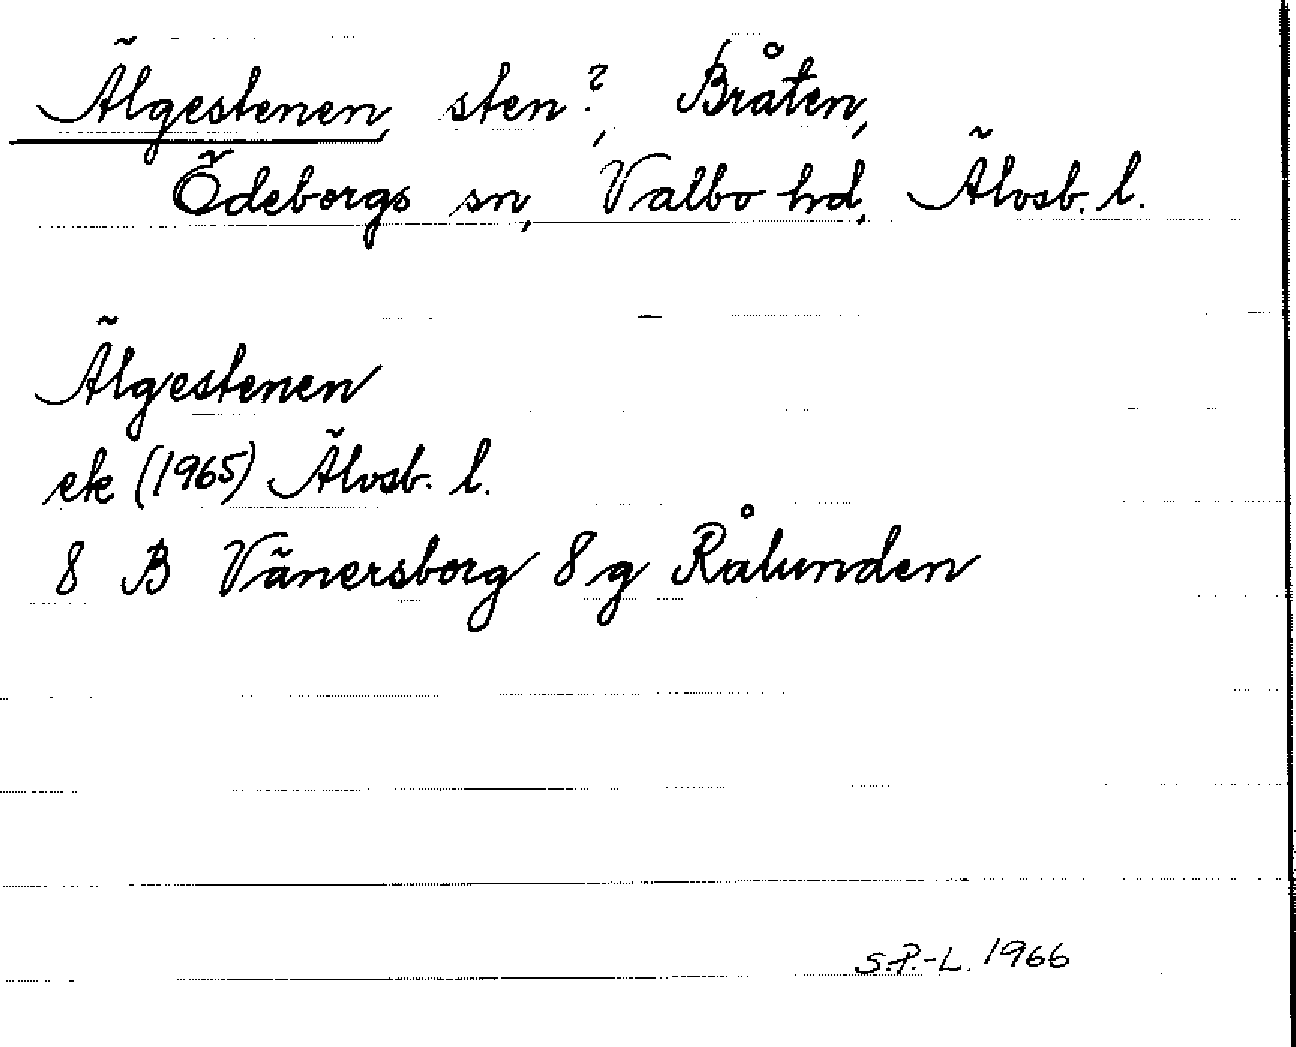 Älgestenen, sten?, Bråten,
Ödeborgs sn, Valbo hd, Älvsb. l.
Älgestenen
ek (1965) Älvsb. l.
8 B Vänersborg 8 g Rålunden
S.P.-L. 1966